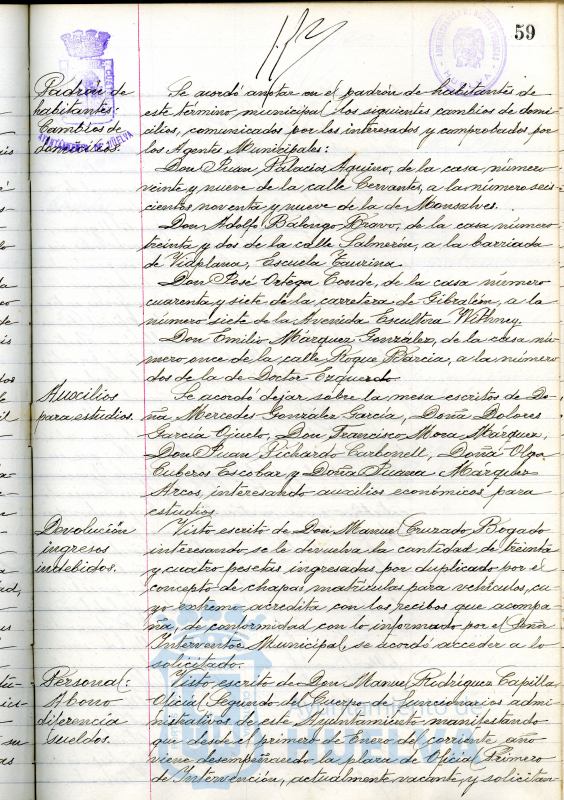 59
Padrón de
habitantes:
Cambios de
domicilios.
Se acordó anotar en el padrón de habitantes de
este término municipal los siguientes cambios de domi-
cilios, comunicados por los interesados y comprobados por
los Agentes Municipales:
Don Juan Palacios Aquino, de la casa número
veinte y nueve de la calle Cervantes, a la número seis-
cientos noventa y nueve de la de Monsalves.
Don Adolfo Bálongo Bravo, de la casa número
treinta y dos de la calle Labneria, a la barriada
de Viaplana, Escuela Taurina.
Don José Ortega Conde, de la casa número
cuarenta y siete de la carretera de Gibraleón, a la
número siete de la Avenida Escultora Withney.
Don Emilio Márquez González, de la casa nú-
mero once de la calle Roque Barcia, a la número
dos de la de Doctor Ezquerdo.
Auxilios
para estudios.
Se acordó dejar sobre la mesa escritos de Do-
ña Mercedes Gonzalez García, Doña Dolores
García Ojuelo, Don Francisco Mora Márquez,
Don Juan Pichardo Carbonell, Doña Olga
Cuberos Escobar y Doña Juana Márquez
Arcos, interesando auxilios económicos para
estudios.
Devolución
ingresos
indebidos.
Visto escrito de Don Manuel Cruzado Bogado
interesando se le devuelva la cantidad de treinta
y cuatro pesetas ingresadas por duplicado por el
concepto de chapas matrículas para vehículos, cu-
yo extremo acredita con los recibos que acompa-
ña, de conformidad con lo informado por el Señor
Interventor Municipal, se acordó acceder a lo
solicitado.
Personal:
Abono
diferencia
sueldos.
Visto escrito de Don Manuel Rodríguez Capilla,
Oficial Segundo del Cuerpo de Funcionarios admi-
nistrativos de este Ayuntamiento manifestando
que desde el primero de Enero del corriente año
viene desempeñando la plaza de Oficial Primero
de Intervención, actualmente vacante, y solicitan-
AYUNTAMIENTO DE HUELVA
Ayuntamiento de
HUELVA